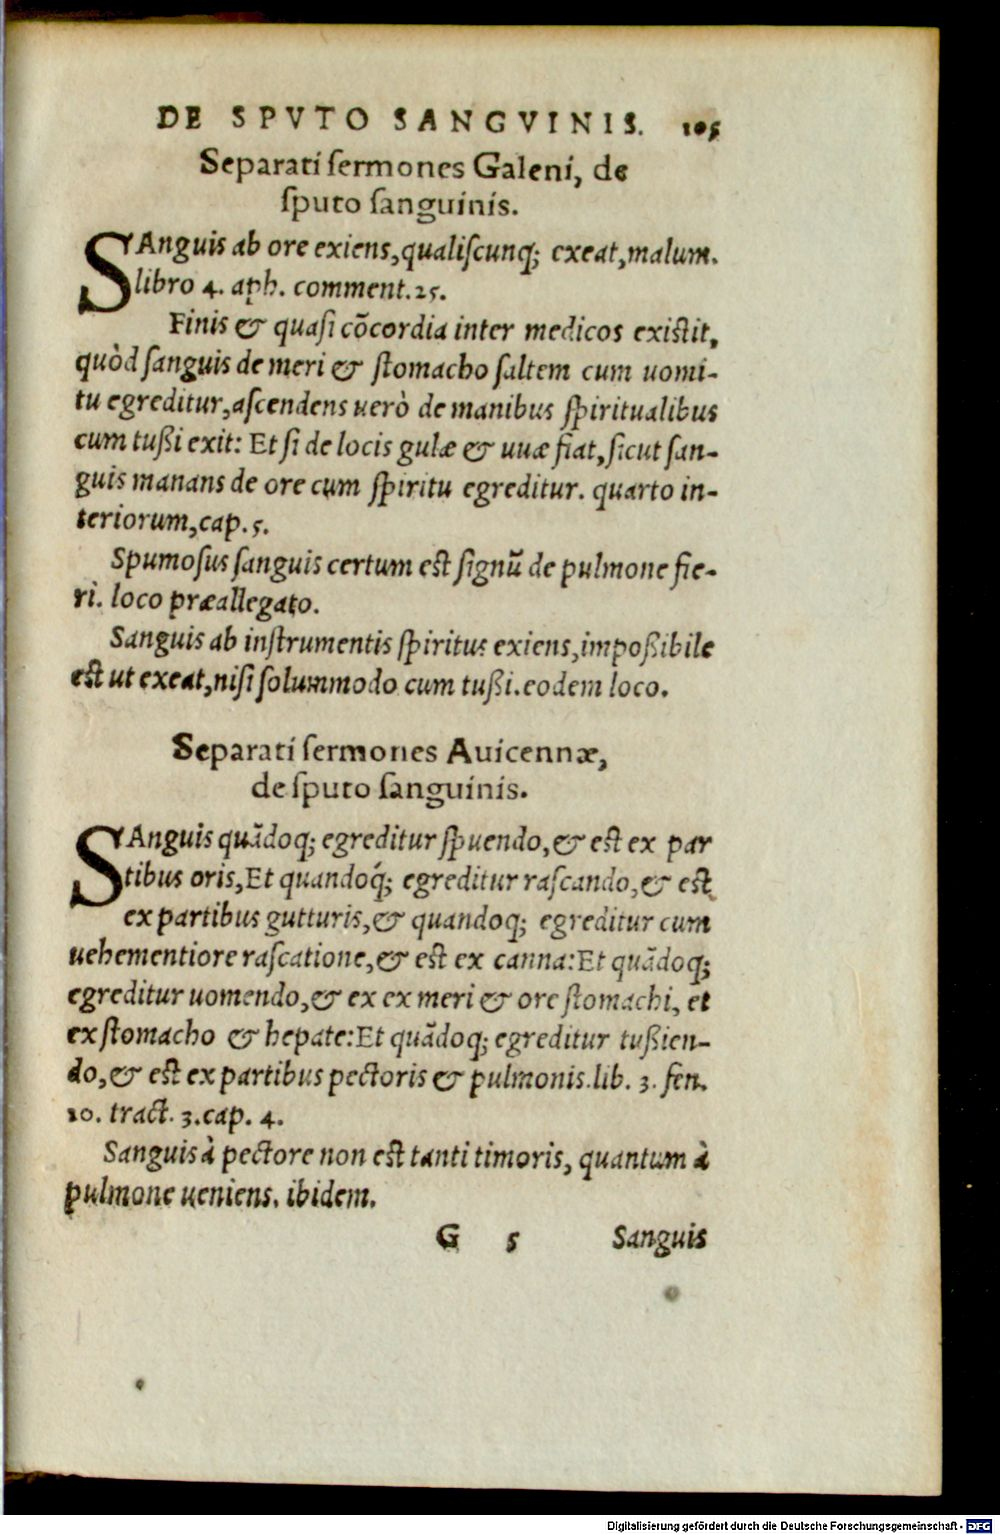 DE SPVTO SANGVINIS. 105
Separati sermones Galeni, de
sputo sanguinis.
SAnguis ab ore exiens, qualiscunq; exeat, malum.
libro 4. aph. comment. 25.
Finis & quasi cõcordia inter medicos existit,
quòd sanguis de meri & stomacho saltem cum uomi-
tu egreditur, ascendens uerò de manibus spiritualibus
cum tußi exit: Et si de locis gulæ & uuæ fiat, sicut san-
guis manans de ore cum spiritu egreditur. quarto in-
teriorum, cap. 5.
Spumosus sanguis certum est signũ de pulmone fie-
ri. loco præallegato.
Sanguis ab instrumentis spiritus exiens, impoßibile
est ut exeat, nisi solummodo cum tußi. eodem loco.
Separati sermones Auicennæ,
de sputo sanguinis.
SAnguis quãdoq; egreditur spuendo, & est ex par
tibus oris, Et quandoq́; egreditur rascando, & est
ex partibus gutturis, & quandoq; egreditur cum
uehementiore rascatione, & est ex canna: Et quãdoq;
egreditur uomendo, & ex ex meri & ore stomachi, et
ex stomacho & hepate: Et quãdoq; egreditur tußien-
do, & est ex partibus pectoris & pulmonis. lib. 3. fen.
10. tract. 3. cap. 4.
Sanguis à pectore non est tanti timoris, quantum à
pulmone ueniens. ibidem.
G 5 Sanguis
Digitalisierung gefördert durch die Deutsche Forschungsgemeinschaft - DFG